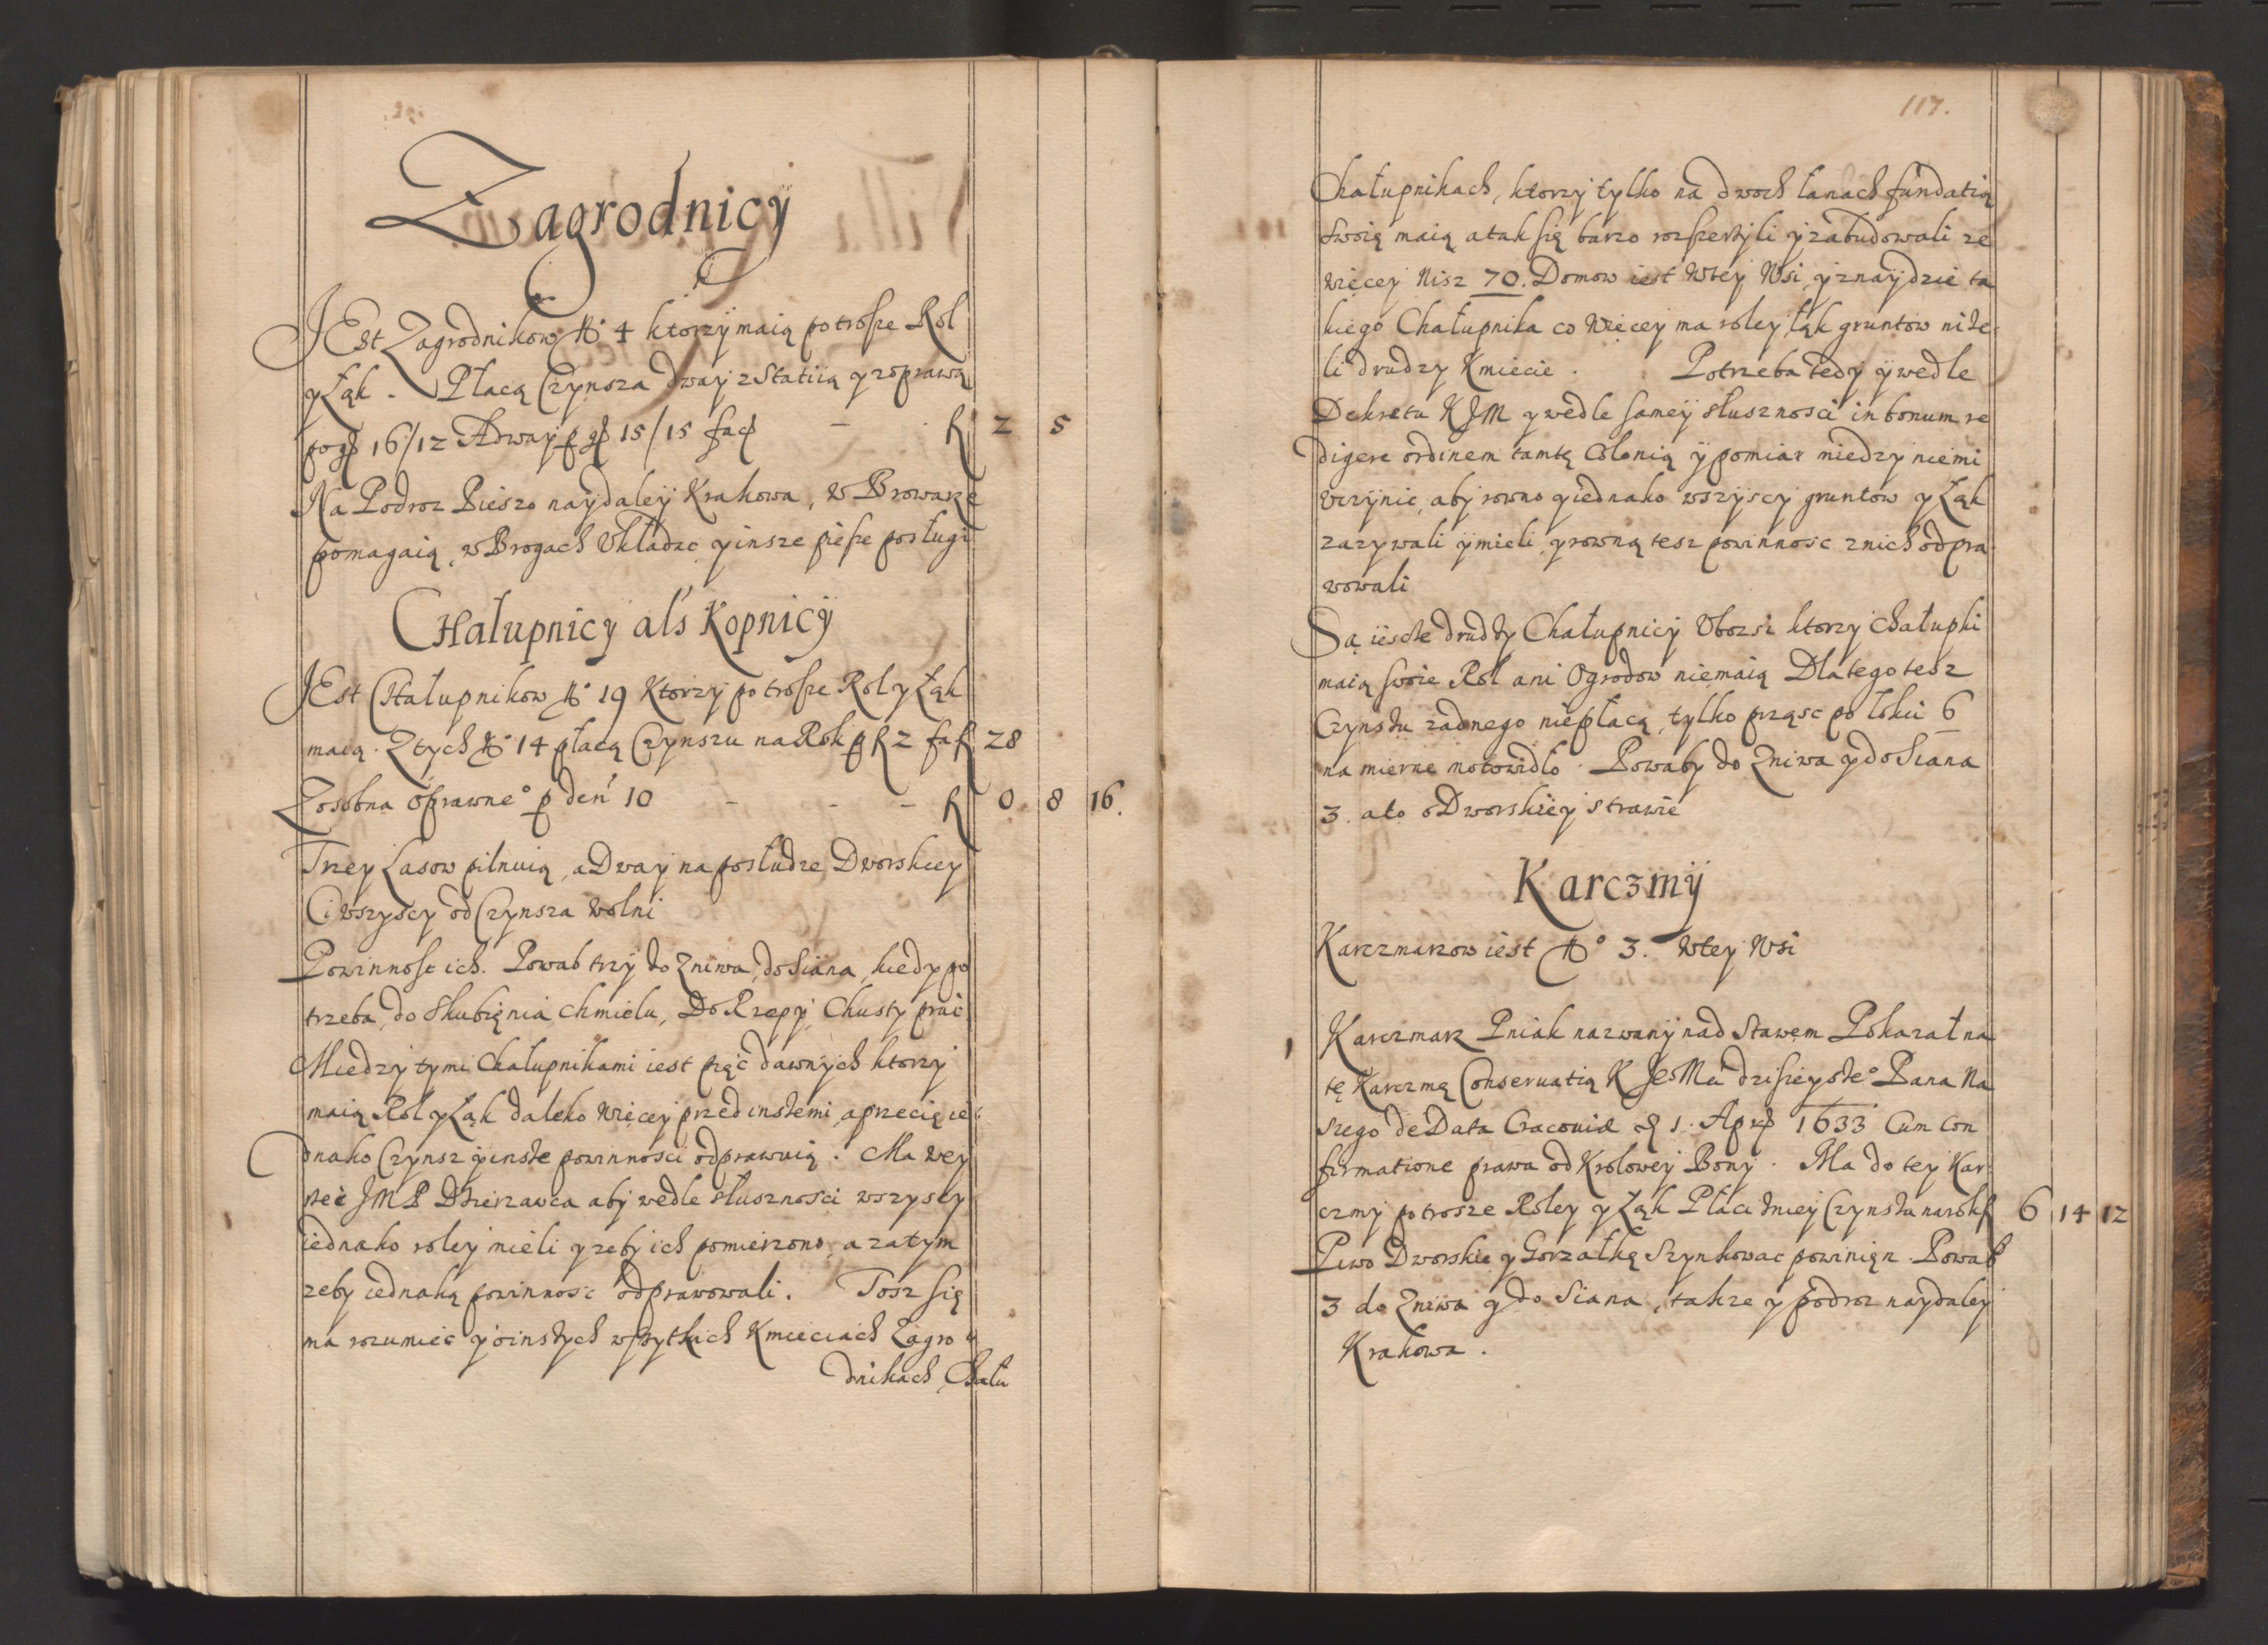 Zagrodnicÿ
JEst Zagrodnikow No 4 ktorzÿ maią po trosze Rol
y Łąk. Płacą Czynsza dwaÿ z Statiią y zoprawą
po gl 16/12 A dwaÿ p gl 15/15 fac R 2 5
Na Podroz Pieszo naÿdaleÿ Krakowa, w Browarze
pomagaią, w Brogach Vkładac y insze piesze posługi
CHałupnicÿ als Kopnicÿ
JEst CHałupnikow No 19 Ktorzÿ po trosze Rol y Łąk
maią. Z tych No 14 płacą Czynszu na Rok p R 2 fa R 28
Zosobna oprawne° p den 10 - - - R 0 8 16.
Trzey Lasow pilnuią, a Dwaÿ na posłudze Dworskiey
Ci wszyscy od Czynsza wolni
Powinnosc ich. Powab trzÿ do Zniwa, do Siana, kiedy po
trzeba, do Skubięnia chmielu, Do Rzepÿ, Chusty prac
Miedzÿ tymi Chałupnikami iest pięc dawnÿch ktorzÿ
maią Rol y Łąk daleko więcey przed inszemi, a przecię ie
dnako Czynsz ÿ insze powinnosci odprawuią. Ma wey
rzec JMP Dzierzawca abÿ wedle słusznosci wszyscy
iednako roley mieli y zebÿ ich pomierzono, a zatym
zeby iednaką powinnosc odprawowali. Tosz się
ma rozumiec y o inszych wszytkich Kmieciach Zagro
dnikach, Chału
117.
Chałupnikach, ktorzÿ tylko na dwoch łanach fundatią
swoię maią a tak się barzo rozszerzÿli y zabudowali ze
więcey nisz 70. Domow iest w tey Wsi, y znaÿdzie ta
kiego Chałupnika co więcey ma roley, łąk gruntow niże
li drudzy Kmiecie. Potrzeba tedy ÿ wedle
Dekretu KJM y wedle sameÿ słusznosci in bonum re
digere ordinem tamtę Colonią ÿ pomiar miedzy niemi
vczÿnic, abÿ rowno y iednako wszÿscÿ gruntow y Łąk
zazywali ÿ mieli, y rowną tesz powinnosc z nich odpra
wowali
Są ieszcze drudzy Chałupnicÿ Vbozsi ktorzy chałupki
maią swoie Rol ani Ogrodow niemaią Dlatego tesz
Czynszu zadnego niepłacą, tylko prząsc po łokci 6
na mierne motowidło. Powaby do Zniwa y do Siana
3. a to o Dworskieÿ strawie
Karczmÿ
Karczmarzow iest No 3. w tey Wsi
1 Karczmarz Pniak nazwanÿ nad Stawem Pokazał na
tę Karczmę Conseruatią K JeoMci dzisieysze° Pana Na
szego de Data Cracouiæ d 1. Apr 1633 Cum Con
firmatione prawa od Krolowey Bonÿ. Ma do tey Kar
czmÿ po trosze Roley y Łąk Płaci zniey Czynszu na rok R 6 14 12
Piwo Dworskie y Gorzałkę Szynkowac powinięn. Powab
3 do Zniwa y do Siana, takze y podroz naÿdaleÿ
Krakowa.